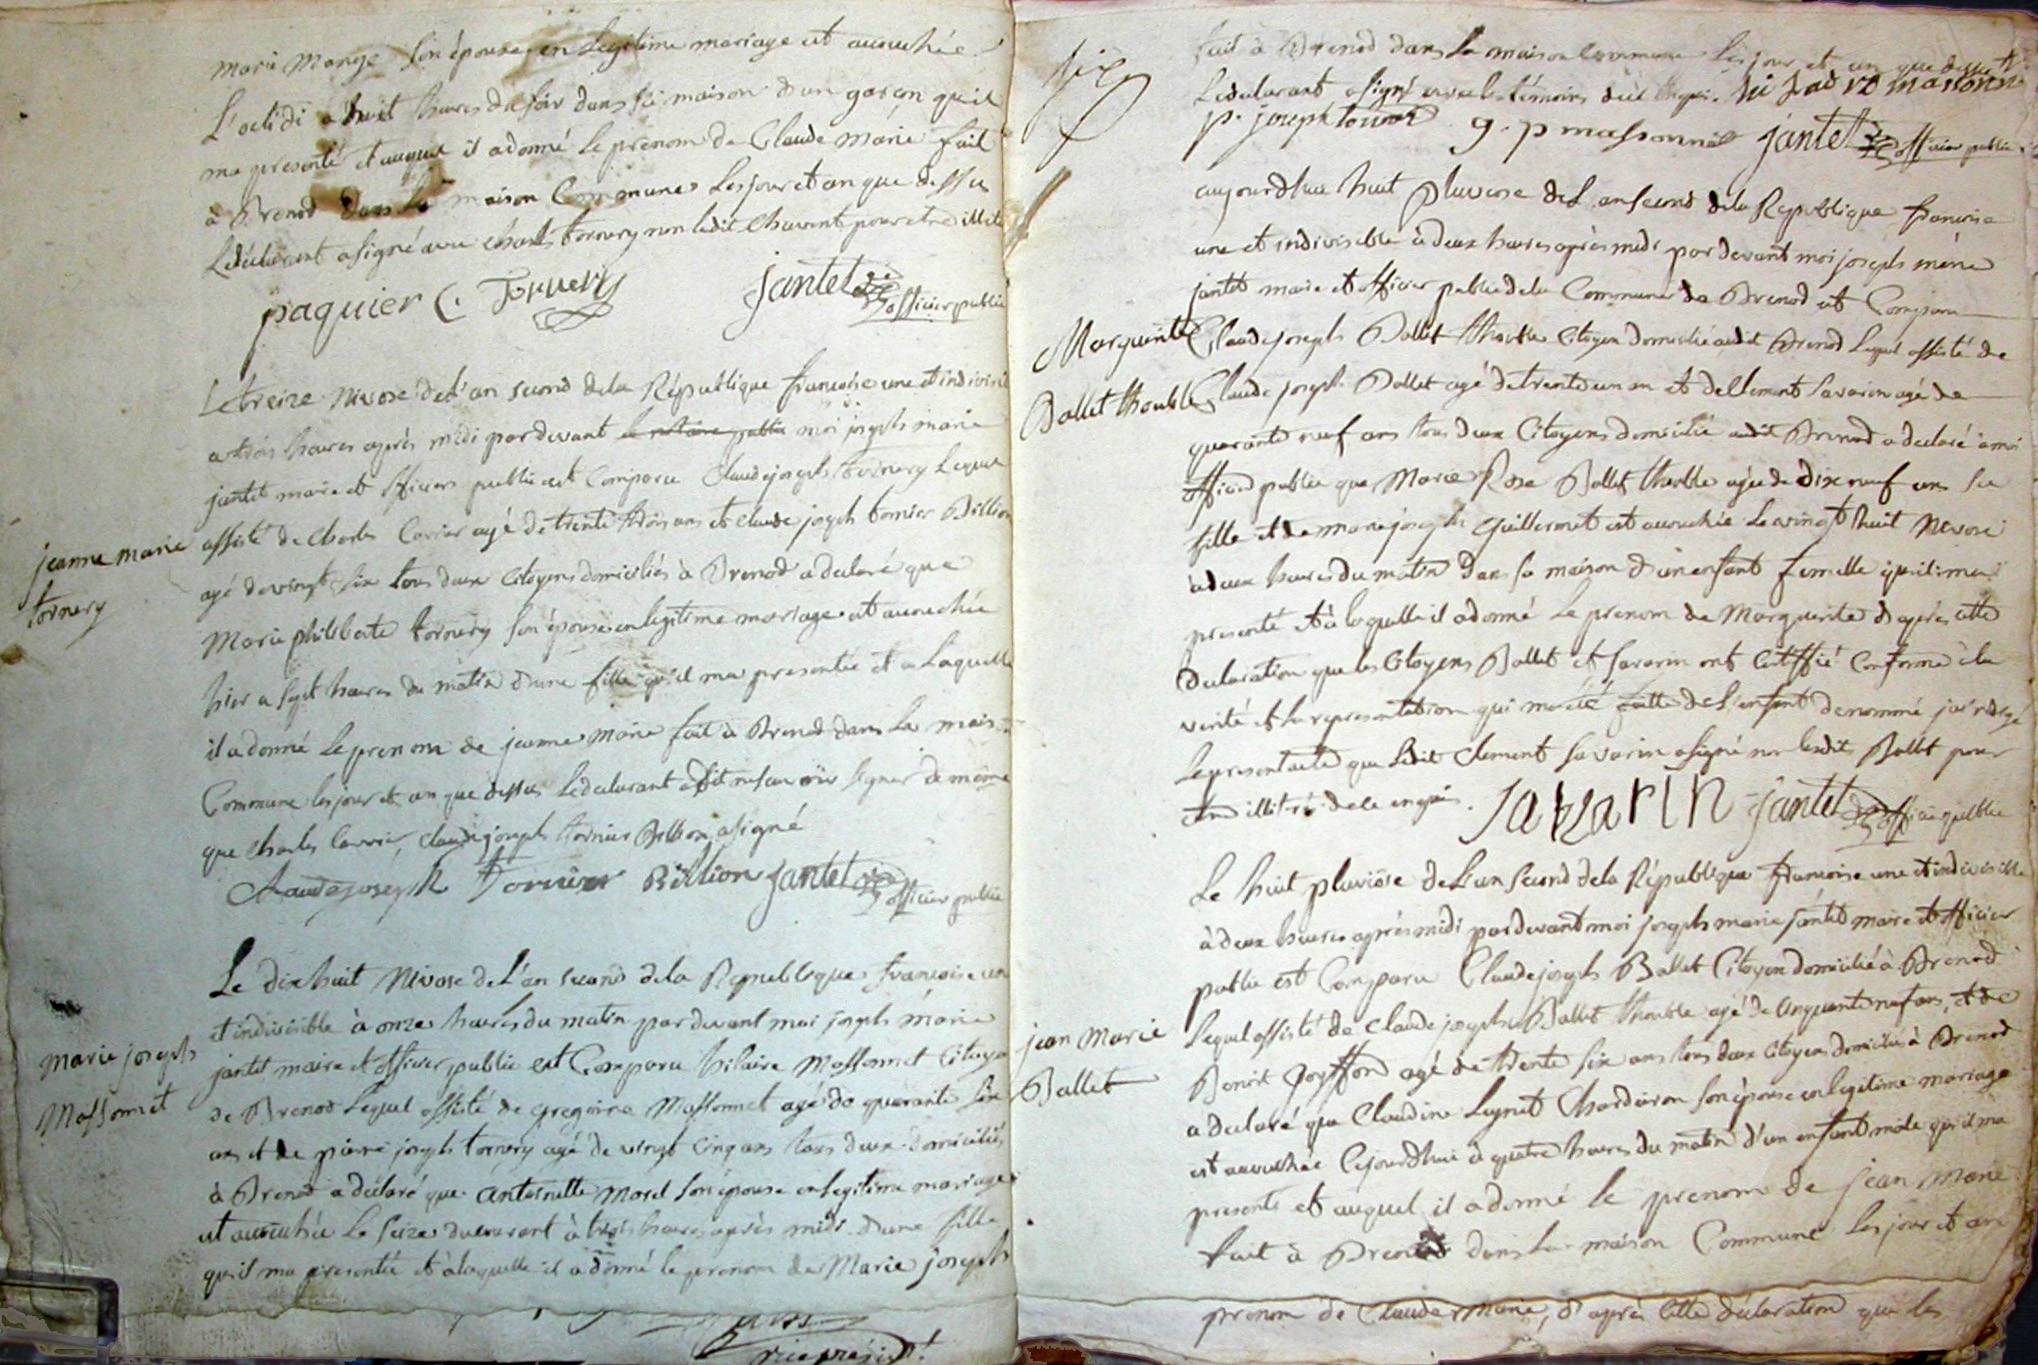 marie Mange son épouse en legitime mariage est accouchée
L'octidi a huit heures du soir dans sa maison d'un garçon qu'il
ma presenté et auquel il a donné le prenom de Claude Marie fait
à Brenod dans la maison Commune les jour et an que dessus
Le déclarant a signé avec charles tornery non ledit Chavent pour etre illite
paquier C. Tornery jantet officier public
Le treize Nivose de l'an second de la République françoise une et indivisi
a trois heures après midi pardevant moi joseph marie
jantet maire et officier public est Comparu Claude joseph tornery Lequel
jeanne marie
tornery
assisté de charles Carrier agé de trente trois ans et claude joseph tornier Billion
agé de vingt six tous deux Citoyens domiciliés à Brenod a declaré que
Marie philiberte tornery son épouse en legitime mariage est accouchée
hier a sept heures du matin d'une fille qu'il ma presentée et a Laquelle
il a donné le prenom de jeanne Marie fait à Brenod dans la mais
Commune les jour et an que dessus Le déclarant a dit ne savoir signer de même
que charles Carrier, claude joseph tornier Billion a signé
Claude joseph Tornier Billion jantet officier public
Le dix huit Nivose de L'an second de la Republique françoise une
et indivisible à onze heures du matin par devant moi joseph marie
marie joseph
Massonnet
jantet maire et officier public est Comparu hilaire Massonnet Citoyen
de Brenod Lequel assisté de gregoire Massonnet agé de quarante six
ans et de pierre joseph tornery agé de vingt cinq ans tous deux domiciliés
à Brenod a déclaré que antoinette Morel son épouse en legitime mariage
est accouchée le seize du courant à trois heures après midi d'une fille
qu'il ma presentée et à laquelle il a donné le prenom de Marie joseph
vice présid.t
fait à Brenod dans la maison commune les jour et an que dessus
Le déclarant a signé avec les témoins
p. joseph tornery g. p massonnet jantet officier public
aujourdhui huit Pluviose de L'an second de la République francoise
une et indivisible à deux heures après midi par devant moi joseph marie
jantet maire et officier public de la Commune de Brenod est Comparu
Marguerite
Ballet thouble
Claude joseph Ballet thouble Citoyen domicilié audit Brenod Lequel assisté de
Claude joseph Ballet agé de trente un an et de Clement Savarin agé de
quarante neuf ans tous deux Citoyens domicilié audit Brenod a declaré à moi
officier public que Marie Rose Ballet thouble agée de dix neuf ans sa
fille et de marie joseph Guillermet est accouchée le vingt huit Nivose
à deux heures du matin dans sa maison d'un enfant femelle qu'il ma
presenté et à laquelle il a donné le prenom de Marguerite d'après cette
declaration que les Citoyens Ballet et Savarin ont Certiffié Conforme à la
verité et la representation qui m'a été faitte de L'enfant denommé j'ai redigé
le present acte que ledit Clement Savarin a signé non lesdits Ballet pour
etre illitéré de ce enquis. Savarin jantet officier public
Le huit pluviôse de L'an second de la République francoise une et indivisible
à deux heures après midi par devant moi joseph marie jantet maire et officier
public est Comparu Claude joseph Ballet Citoyen domicilié à Brenod
jean Marie
Ballet
lequel assisté de claude joseph Ballet thouble agé de cinquante neuf ans, et de
Benoit Goyffon agé de trente six ans tous deux Citoyens domiciliés à Brenod
a declaré que Claudine Chardeiron son épouse en legitime mariage
est accouchée Cejourdhui à quatre heures du matin d'un enfant mâle qu'il ma
presenté et auquel il a donné le prenom de jean Marie
fait à Brenod dans la maison Commune les jour et an
prenom de Claude Marie, d'après cette déclaration que les